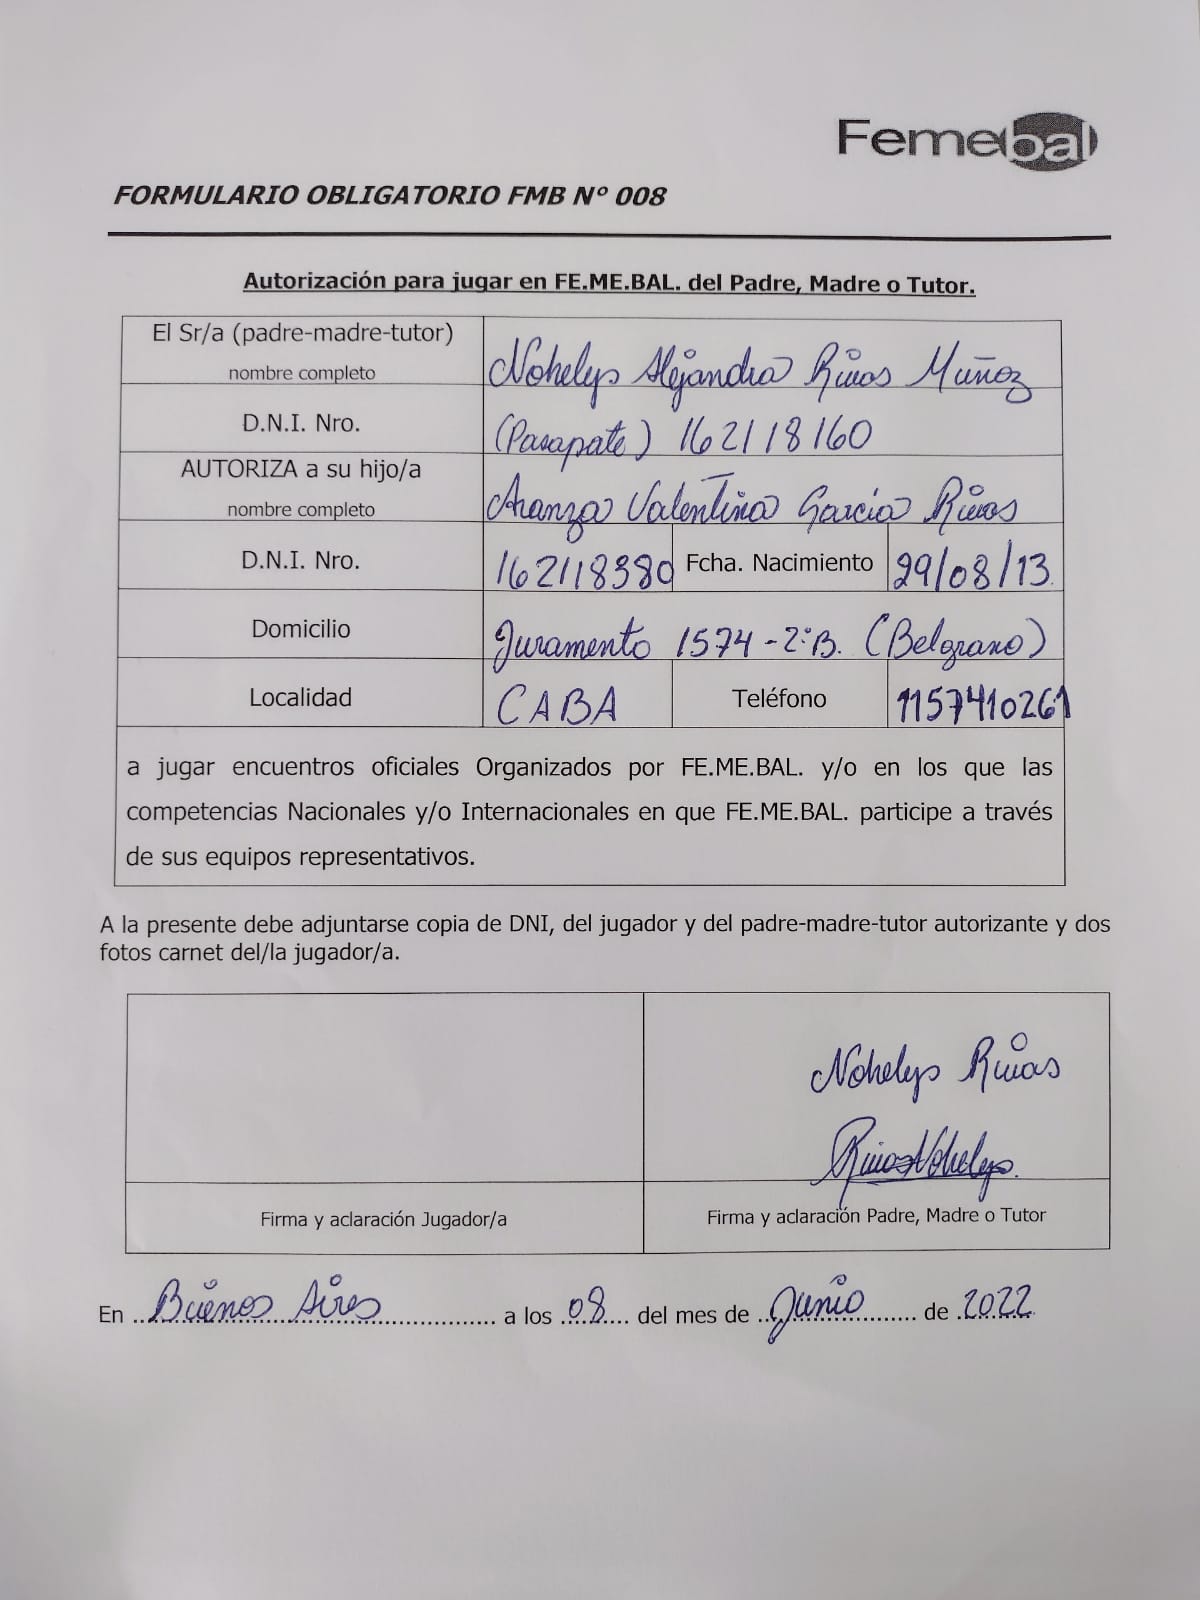 Femebal
FORMULARIO OBLIGATORIO FMB Nº 008
Autorización para jugar en FE.ME.BAL. del Padre, Madre o Tutor.
El Sr/a (padre-madre-tutor)
nombre completo
Nohelys Alejandra Rivas Muñoz
D.N.I. Nro.
(Pasapote) 162118160
AUTORIZA a su hijo/a
nombre completo
Aranza Valentina García Rivas
D.N.I. Nro.
162118380
Fcha. Nacimiento
29/08/13
Domicilio
Juramento 1574 - 2°B. (Belgrano)
Localidad
CABA
Teléfono
1157410261
a jugar encuentros oficiales Organizados por FE.ME.BAL. y/o en los que las
competencias Nacionales y/o Internacionales en que FE.ME.BAL. participe a través
de sus equipos representativos.
A la presente debe adjuntarse copia de DNI, del jugador y del padre-madre-tutor autorizante y dos
fotos carnet del/la jugador/a.
Nohelys Rivas
Rivas Nohelys.
Firma y aclaración Jugador/a
Firma y aclaración Padre, Madre o Tutor
En Buenos Aires a los 08 del mes de Junio de 2022